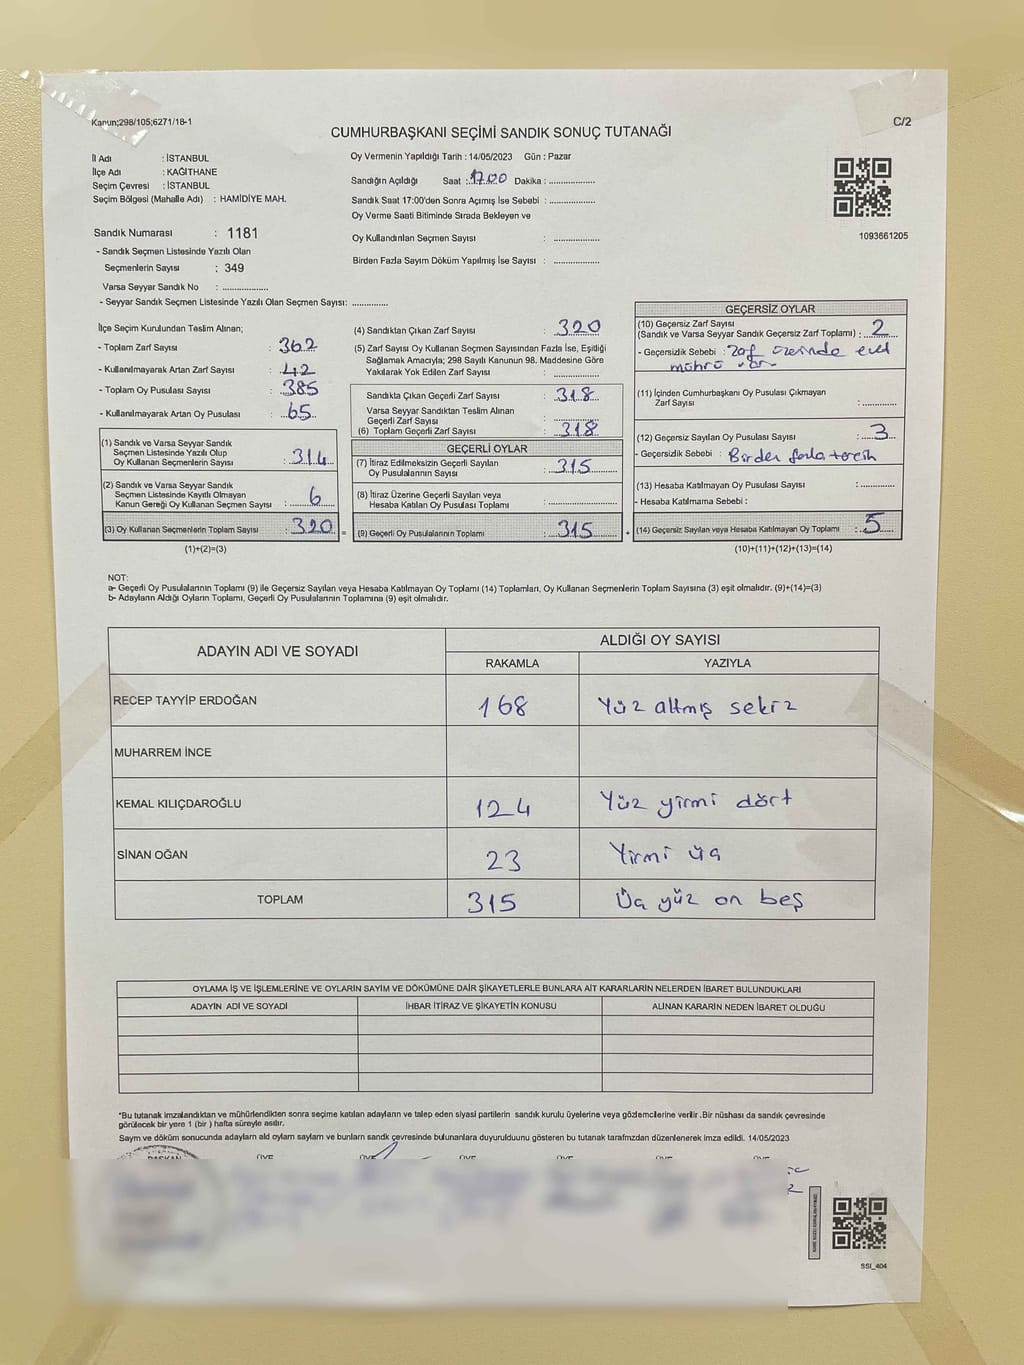 Kanun;298/105;6271/18-1
C/2
CUMHURBAŞKANI SEÇİMİ SANDIK SONUÇ TUTANAĞI
İl Adı : İSTANBUL
İlçe Adı : KAĞITHANE
Seçim Çevresi : İSTANBUL
Seçim Bölgesi (Mahalle Adı) : HAMİDİYE MAH.
Sandık Numarası : 1181
- Sandık Seçmen Listesinde Yazılı Olan
Seçmenlerin Sayısı : 349
Varsa Seyyar Sandık No : ..................
- Seyyar Sandık Seçmen Listesinde Yazılı Olan Seçmen Sayısı: ..............
Oy Vermenin Yapıldığı Tarih : 14/05/2023 Gün : Pazar
Sandığın Açıldığı Saat : 17.00 Dakika : ..................
Sandık Saat 17:00'den Sonra Açımış İse Sebebi : ..................
Oy Verme Saati Bitiminde Sırada Bekleyen ve
Oy Kullandırılan Seçmen Sayısı : ..................
Birden Fazla Sayım Döküm Yapılmış İse Sayısı : ..................
1093661205
İlçe Seçim Kurulundan Teslim Alınan;
- Toplam Zarf Sayısı : 362
- Kullanılmayarak Artan Zarf Sayısı : 42
- Toplam Oy Pusulası Sayısı : 385
- Kullanılmayarak Artan Oy Pusulası : 65
(1) Sandık ve Varsa Seyyar Sandık
Seçmen Listesinde Yazılı Olup
Oy Kullanan Seçmenlerin Sayısı : 314
(2) Sandık ve Varsa Seyyar Sandık
Seçmen Listesinde Kayıtlı Olmayan
Kanun Gereği Oy Kullanan Seçmen Sayısı : 6
(3) Oy Kullanan Seçmenlerin Toplam Sayısı : 320 =
(1)+(2)=(3)
(4) Sandıktan Çıkan Zarf Sayısı : 320
(5) Zarf Sayısı Oy Kullanan Seçmen Sayısından Fazla İse, Eşitliği
Sağlamak Amacıyla; 298 Sayılı Kanunun 98. Maddesine Göre
Yakılarak Yok Edilen Zarf Sayısı : ..................
Sandıkta Çıkan Geçerli Zarf Sayısı : 318
Varsa Seyyar Sandıktan Teslim Alınan
Geçerli Zarf Sayısı : ..................
(6) Toplam Geçerli Zarf Sayısı : 318
GEÇERLİ OYLAR
(7) İtiraz Edilmeksizin Geçerli Sayılan
Oy Pusulalarının Sayısı : 315
(8) İtiraz Üzerine Geçerli Sayılan veya
Hesaba Katılan Oy Pusulaları Toplamı : ..................
(9) Geçerli Oy Pusulalarının Toplamı : 315 +
GEÇERSİZ OYLAR
(10) Geçersiz Zarf Sayısı
(Sandık ve Varsa Seyyar Sandık Geçersiz Zarf Toplamı) : 2
- Geçersizlik Sebebi : Zarf üzerinde evet
mührü var
(11) İçinden Cumhurbaşkanı Oy Pusulası Çıkmayan
Zarf Sayısı : ..............
(12) Geçersiz Sayılan Oy Pusulası Sayısı : 3
- Geçersizlik Sebebi : Birden fazla tercih
(13) Hesaba Katılmayan Oy Pusulası Sayısı : ..............
- Hesaba Katılmama Sebebi :
(14) Geçersiz Sayılan veya Hesaba Katılmayan Oy Toplamı : 5
(10)+(11)+(12)+(13)=(14)
NOT:
a- Geçerli Oy Pusulalarının Toplamı (9) ile Geçersiz Sayılan veya Hesaba Katılmayan Oy Toplamı (14) Toplamları, Oy Kullanan Seçmenlerin Toplam Sayısına (3) eşit olmalıdır. (9)+(14)=(3)
b- Adayların Aldığı Oyların Toplamı, Geçerli Oy Pusulalarının Toplamına (9) eşit olmalıdır.
ADAYIN ADI VE SOYADI
ALDIĞI OY SAYISI
RAKAMLA YAZIYLA
RECEP TAYYİP ERDOĞAN 168 Yüz altmış sekiz
MUHARREM İNCE
KEMAL KILIÇDAROĞLU 124 Yüz yirmi dört
SİNAN OĞAN 23 Yirmi üç
TOPLAM 315 Üç yüz on beş
OYLAMA İŞ VE İŞLEMLERİNE VE OYLARIN SAYIM VE DÖKÜMÜNE DAİR ŞİKAYETLERLE BUNLARA AİT KARARLARIN NELERDEN İBARET BULUNDUKLARI
ADAYIN ADI VE SOYADI İHBAR İTİRAZ VE ŞİKAYETİN KONUSU ALINAN KARARIN NEDEN İBARET OLDUĞU
*Bu tutanak imzalandıktan ve mühürlendikten sonra seçime katılan adayların ve talep eden siyasi partilerin sandık kurulu üyelerine veya gözlemcilerine verilir.Bir nüshası da sandık çevresinde
görülecek bir yere 1 (bir ) hafta süreyle asılır.
Sayım ve döküm sonucunda adayların ald oyların sayıların ve bunların sandk çevresinde bulunanlara duyurulduunu gösteren bu tutanak tarafmzdan düzenlenerek imza edildi. 14/05/2023
BAŞKAN ÜYE ÜYE ÜYE ÜYE ÜYE ÜYE
SSI_404